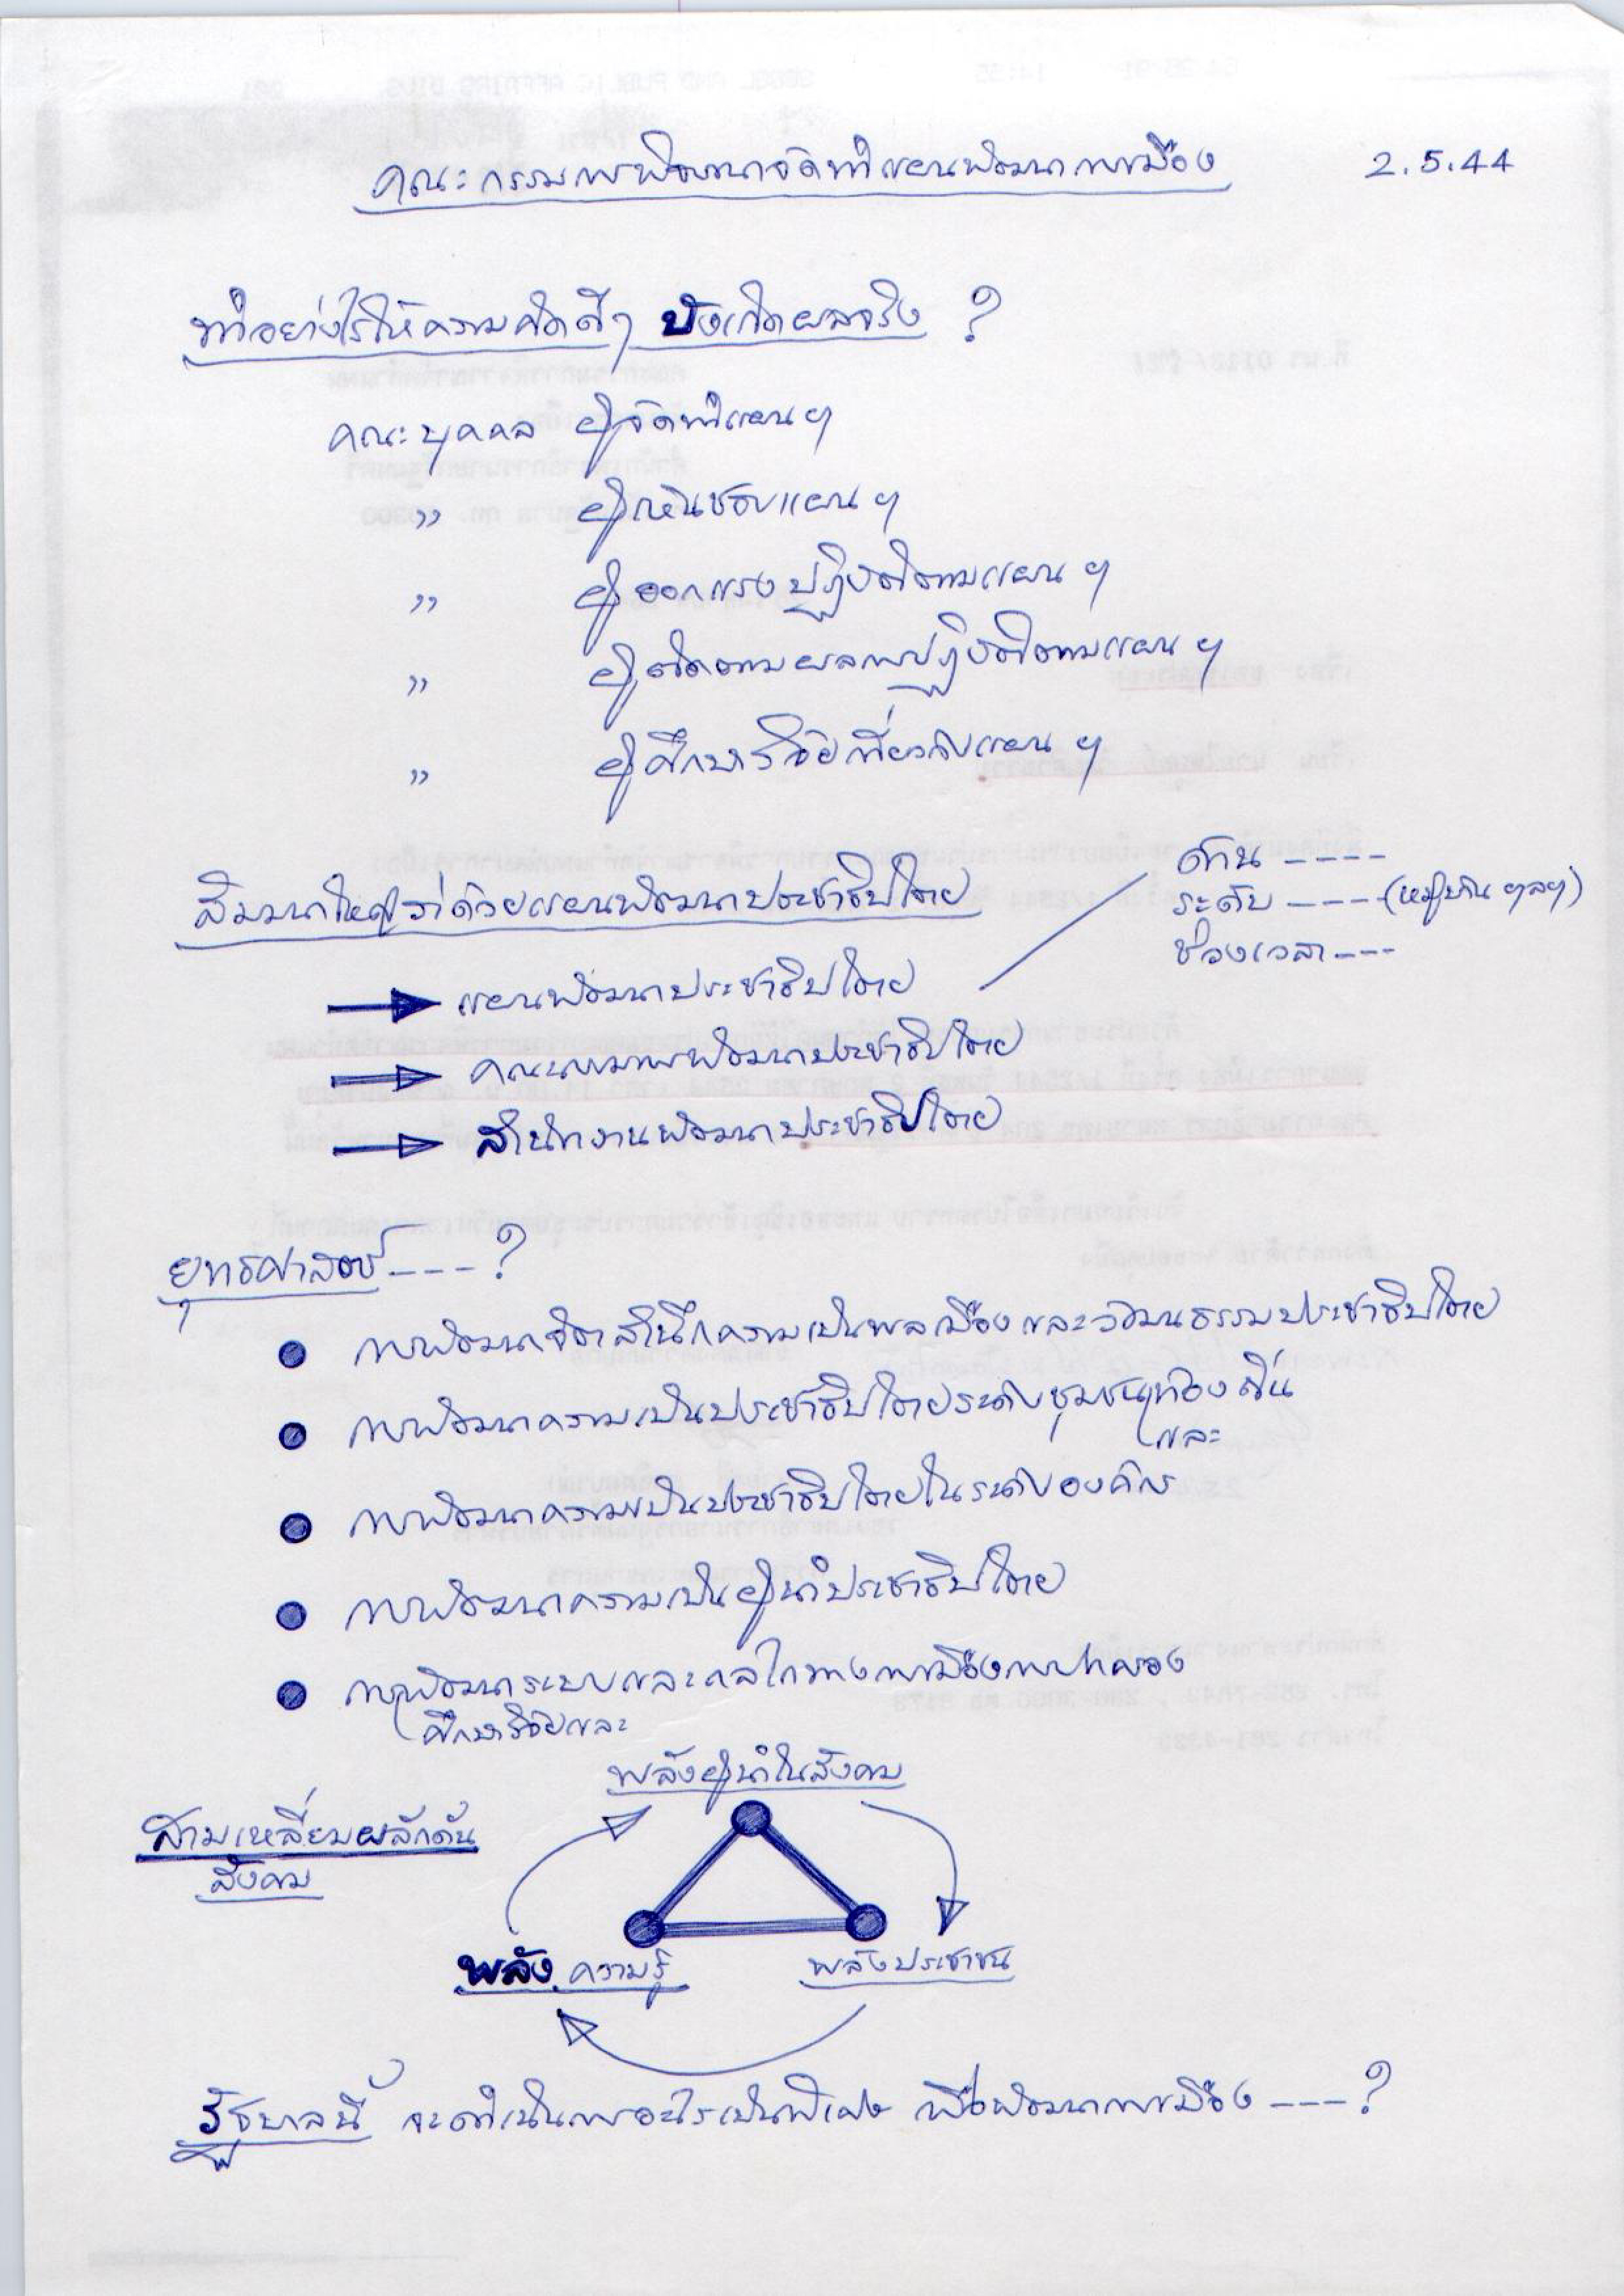 คณะกรรมการพิจารณาจัดทำแผนพัฒนาการเมือง 2.5.44
ทำอย่างไรให้ความคิดดีๆ บังเกิดผลจริง ?
คณะบุคคล ผู้จัดทำแผนฯ
" ผู้เห็นชอบแผนฯ
" ผู้ออกแรงปฏิบัติตามแผนฯ
" ผู้ติดตามผลการปฏิบัติตามแผนฯ
" ผู้ศึกษาวิจัยเกี่ยวกับแผนฯ
สัมมนาใหญ่ว่าด้วยแผนพัฒนาประชาธิปไตย
ด้าน ----
ระดับ ---- (หมู่บ้าน ฯลฯ)
ช่วงเวลา ---
แผนพัฒนาประชาธิปไตย
คณะกรรมการพัฒนาประชาธิปไตย
สำนักงานพัฒนาประชาธิปไตย
ยุทธศาสตร์ ---- ?
● การพัฒนาจิตสำนึกความเป็นพลเมืองและวัฒนธรรมประชาธิปไตย
● การพัฒนาความเป็นประชาธิปไตยระดับชุมชนท้องถิ่น
และ
● การพัฒนาความเป็นประชาธิปไตยในระดับองค์กร
● การพัฒนาความเป็นผู้นำประชาธิปไตย
● การพัฒนาระบบและกลไกทางการเมืองการปกครอง
ศึกษาวิจัยและ
พลังผู้นำในสังคม
สามเหลี่ยมผลักดัน
สังคม
พลังความรู้ พลังประชาชน
รัฐบาลนี้ จะดำเนินการอะไรเป็นพิเศษ เพื่อพัฒนาการเมือง ---- ?